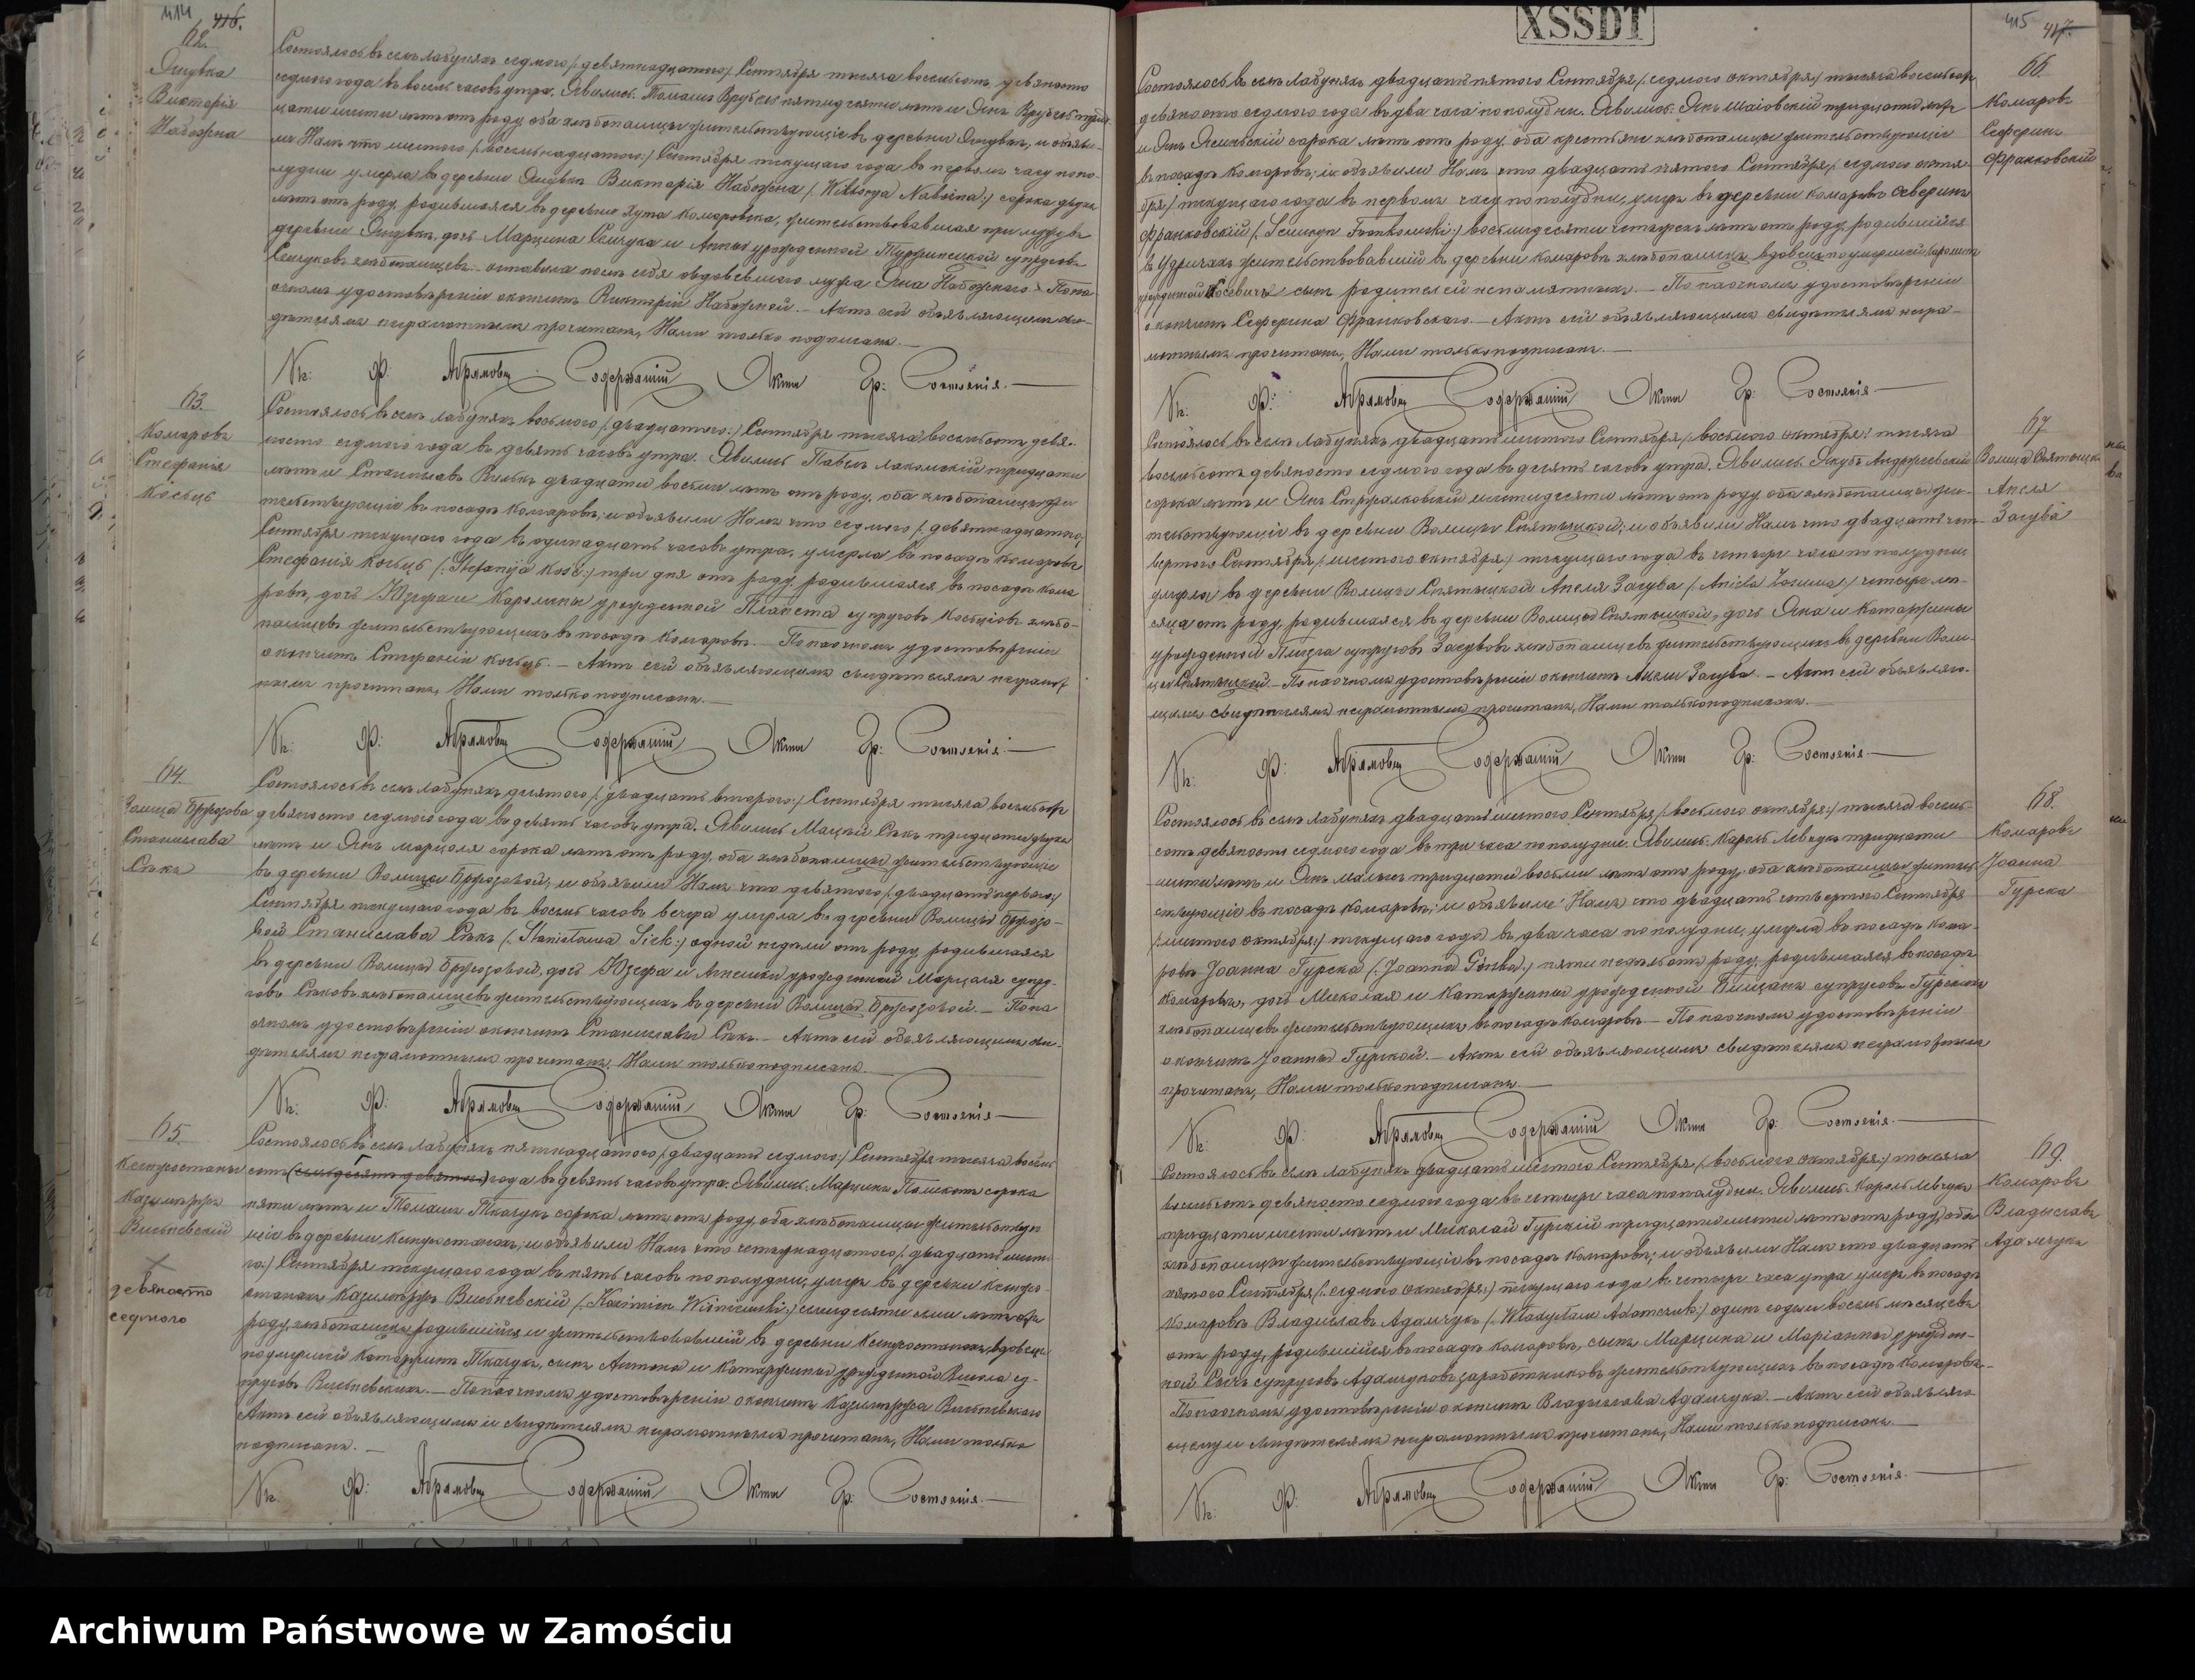 414 416.
62.
Янувка
Виктория
Набожна
Состоялось въ селѣ Лабуняхъ седмого /:девятнадцатого:/ Сентября тысяча восемьсотъ девяносто
седмого года въ восемь часовъ утра. Явились Томашъ Врубель пятидесяти лѣтъ и Янъ Врубель
лѣтъ отъ роду, оба хлѣбопашцы жительствующіе въ деревни Янувкѣ, и объяви-
ли Намъ что шестого /:восемнадцатого:/ Сентября текущаго года въ первомъ часу попо-
лудни умерла въ деревни Янувкѣ Викторія Набожна /:Wiktorya Nabożna:/ сорока
лѣтъ отъ роду, родившаяся въ деревни Хута Комаровска, жительствовавшая при мужѣ въ
деревни Янувкѣ, дочь Марцина Сенчука и Анны урожденной супруговъ
Сенчуковъ хлѣбопашцевъ. оставила послѣ себя овдовѣвшаго мужа Яна Набожнаго. – Попа
очномъ удостовѣреніи окончинѣ Викторіи Набожной. – Актъ сей объявляющимъ сви-
дѣтелямъ неграмотнымъ прочитанъ, Нами только подписанъ. –
Кс: Ф: Абрамовичъ Содержащій Акты Гр: Состоянія. –
63.
Комаровъ
Стефанія
Косьць
Состоялось въ селѣ Лабуняхъ восьмого /:двадцатого:/ Сентября тысяча восемьсотъ девя-
носто седмого года въ девять часовъ утра. Явились Павелъ тридцати
лѣтъ и Станиславъ двадцати восьми лѣтъ отъ роду, оба хлѣбопашцы жи
тельствующіе въ посадѣ Комаровѣ, и объявили Намъ что седмого /:девятнадцатого:/
Сентября текущаго года въ одинадцать часовъ утра, умерла въ посадѣ Комаровѣ
Стефанія Косьць /:Stefanija Kość:/ три дня отъ роду, родившаяся въ посадѣ Кома
ровѣ, дочь Юзефа и Каролины урожденной супруговъ Косьціовъ хлѣбо-
пашцевъ жительствующихъ въ посадѣ Комаровѣ. – Попаочномъ удостовѣреніи
окончинѣ Стефаніи Косьць. – Актъ сей объявляющимъ свидѣтелямъ неграмот
нымъ прочитанъ, Нами только подписанъ. –
Кс: Ф: Абрамовичъ Содержащій Акты Гр: Состоянія. –
64.
Волица Бржозова
Станислава
Сѣкъ
Состоялось въ селѣ Лабуняхъ десятого /:двадцать второго:/ Сентября тысяча восемьсотъ
девяносто седмого года въ девять часовъ утра. Явились Мацей Сѣкъ тридцати двухъ
лѣтъ и Янъ Марцоля сорока лѣтъ отъ роду, оба хлѣбопашцы жительствующіе
въ деревни Волици Бржозовой, и объявили Намъ что девятого /:двадцать первого:/
Сентября текущаго года въ восемь часовъ вечера умерла въ деревни Волици Бржозо-
вой Станислава Сѣкъ /:Stanisława Siek:/ одной недѣли отъ роду, родившаяся
въ деревни Волици Бржозовой, дочь Юзефа и Агнешки урожденной Марцоля супру-
говъ Сѣковъ хлѣбопашцевъ жительствующихъ въ деревни Волици Бржозовой. – Попа
очномъ удостовѣреніи окончинѣ Станиславы Сѣкъ. – Актъ сей объявляющимъ сви-
дѣтелямъ неграмотнымъ прочитанъ, Нами только подписанъ. –
Кс: Ф: Абрамовичъ Содержащій Акты Гр: Состоянія –
65.
Казимержъ
Висьневскій
девяносто
седмого
Состоялось въ селѣ Лабуняхъ пятнадцатого /:двадцать седмого:/ Сентября тысяча восемь
сотъ года въ девять часовъ утра. Явились Марцинъ сорока
пяти лѣтъ и Томашъ Ткачукъ сорока лѣтъ отъ роду, оба хлѣбопашцы жительствую
щіе въ деревни и объявили Намъ что четырнадцатого /:двадцать шесто
го:/ Сентября текущаго года въ пять часовъ пополудни, умеръ въ деревни
Казимержъ Висьневскій /:Kazimierz Wiśniewski:/ семидесяти семи лѣтъ отъ
роду, хлѣбопашецъ родившійся и жительствовавшій въ деревни вдовецъ
поумершей Катаржинѣ Ткачукъ, сынъ Антона и Катаржины урожденной су-
пруговъ Висьневскихъ. – Попаочномъ удостовѣреніи окончинѣ Казимержа Висьневскаго
Актъ сей объявляющимъ и свидѣтелямъ неграмотнымъ прочитанъ, Нами только
подписанъ. –
Кс: Ф: Абрамовичъ Содержащій Акты Гр: Состоянія. –
XSSDT
415 417.
66.
Комаровъ
Северинъ
Франковскій
Состоялось въ селѣ Лабуняхъ двадцать пятого Сентября /:седмого Октября:/ тысяча восемьсотъ
девяносто седмого года въ два часа пополудни. Явились Янъ тридцати лѣтъ
и Янъ сорока лѣтъ отъ роду, оба крестьяне хлѣбопашцы жительствующіе
въ посадѣ Комаровѣ, и объявили Намъ что двадцать пятого Сентября /:седмого Октя-
бря:/ текущаго года въ первомъ часу пополудни, умеръ въ деревни Комаровѣ Северинъ
Франковскій /:Seweryn Frankowski:/ восемдесяти четырехъ лѣтъ отъ роду, родившійся
въ жительствовавшій въ деревни Комаровѣ хлѣбопашецъ, вдовецъ поумершей
урожденной сынъ родителей непамятныхъ. – Попаочномъ удостовѣреніи
окончинѣ Северина Франковскаго. – Актъ сей объявляющимъ свидѣтелямъ негра-
мотнымъ прочитанъ, Нами только подписанъ. –
Кс: Ф: Абрамовичъ Содержащій Акты Гр: Состоянія. –
67
Волица Снятыцка
Анеля
Засува
Состоялось въ селѣ Лабуняхъ двадцать шестого Сентября /:восьмого Октября:/ тысяча
восемьсотъ девяносто седмого года въ десять часовъ утра. Явились Якубъ Андржеевскій
сорока лѣтъ и Янъ шестидесяти лѣтъ отъ роду, оба хлѣбопашцы жи-
тельствующіе въ деревни Волици Снятыцкой, и объявили Намъ что двадцать чет-
вертого Сентября /:шестого Октября:/ текущаго года въ четыре часа пополудни,
умерла въ деревни Волици Снятыцкой Анеля Засува /:Aniela Zasuwa:/ четыре мѣ-
сяца отъ роду, родившаяся въ деревни Волици Снятыцкой, дочь Яна и Катаржины
урожденной супруговъ Засувовъ хлѣбопашцевъ жительствующихъ въ деревни Воли-
ци Снятыцкой. – Попаочномъ удостовѣреніи окончинѣ Анели Засува. – Актъ сей объявляю-
щимъ свидѣтелямъ неграмотнымъ прочитанъ, Нами только подписанъ. –
Кс: Ф: Абрамовичъ Содержащій Акты Гр: Состоянія. –
68.
Комаровъ
Joанна
Гурска
Состоялось въ селѣ Лабуняхъ двадцать шестого Сентября /:восьмого Октября:/ тысяча восемь-
сотъ девяносто седмого года въ три часа пополудни. Явились Кароль Левчукъ тридцати
шести лѣтъ и Янъ Малецъ тридцати восьми лѣтъ отъ роду, оба хлѣбопашцы жительс-
ствующіе въ посадѣ Комаровѣ, и объявили Намъ что двадцать четвертого Сентября
/:шестого Октября:/ текущаго года въ два часа пополудни, умерла въ посадѣ Кома-
ровѣ Joанна Гурска /:Joanna Górska:/ пяти недѣль отъ роду, родившаяся въ посадѣ
Комаровѣ, дочь Миколая и Катаржины урожденной супруговъ Гурскихъ
хлѣбопашцевъ жительствующихъ въ посадѣ Комаровѣ. – Попаочномъ удостовѣреніи
окончинѣ Joанны Гурской. – Актъ сей объявляющимъ свидѣтелямъ неграмотнымъ
прочитанъ, Нами только подписанъ. –
Кс: Ф: Абрамовичъ Содержащій Акты Гр: Состоянія. –
69.
Комаровъ
Владиславъ
Адамчукъ
Состоялось въ селѣ Лабуняхъ двадцать шестого Сентября /:восьмого Октября:/ тысяча
восемьсотъ девяносто седмого года въ четыре часа пополудни. Явились Кароль Левчукъ
тридцати шести лѣтъ и Миколай Гурскій тридцати шести лѣтъ отъ роду, оба
хлѣбопашцы жительствующіе въ посадѣ Комаровѣ, и объявили Намъ что двадцать
пятого Сентября /:седмого Октября:/ текущаго года въ четыре часа утра умеръ въ посадѣ
Комаровѣ Владиславъ Адамчукъ /:Władysław Adamczuk:/ одинъ годъ и восемь мѣсяцевъ
отъ роду, родившійся въ посадѣ Комаровѣ, сынъ Марцина и Маріанны урожден-
ной супруговъ Адамчуковъ заработниковъ жительствующихъ въ посадѣ Комаровѣ. –
Попаочномъ удостовѣреніи окончинѣ Владислава Адамчука. – Актъ сей объявляю-
щему и свидѣтелямъ неграмотнымъ прочитанъ, Нами только подписанъ. –
Кс: Ф: Абрамовичъ Содержащій Акты Гр: Состоянія. –
Archiwum Państwowe w Zamościu